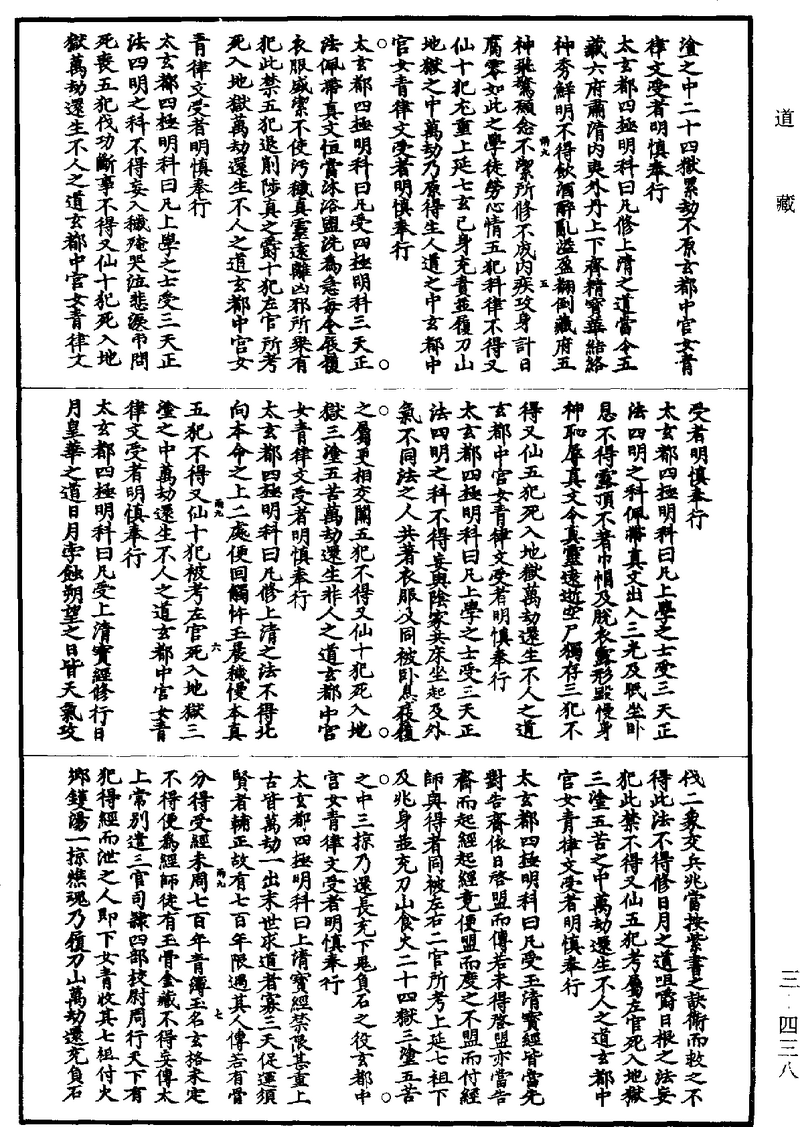 道藏
三·四三八
塗之中二十四獄累劫不原玄都中官女青
律文受者明慎奉行
太玄都四極明科曰凡修上清之道當令五
藏六府肅清内爽外丹上下齋精寶華結絡
神秀鮮明不得飲酒醉亂溢盈翻倒藏府五
神飛驚穢念不潔所修不成内疾攻身計日
腐零如此之學徒勞心情五犯科律不得又
仙十犯充重上延七玄已身充責並履刀山
地獄之中萬劫乃原得生人道之中玄都中
官女青律文受者明慎奉行
太玄都四極明科曰凡受四極明科三天正
法佩帶真文恒當沐浴盥洗為急每令辰褸
衣服盛潔不使污穢真靈遠離凶邪所乘有
犯此禁五犯退削陟真之爵十犯左官所考
死入地獄萬劫還生不人之道玄都中官女
青律文受者明慎奉行
太玄都四極明科曰凡上學之士受三天正
法四明之科不得妄入穢殗哭泣悲淚弔問
死喪五犯伐功斷事不得又仙十犯死入地
獄萬劫還生不人之道玄都中官女青律文
受者明慎奉行
太玄都四極明科曰凡上學之士受三天正
法四明之科佩帶真文出入三光及眠坐卧
息不得露頂不著巾帽及脫衣露形毀慢身
神恥辱真文令真靈遠逝空尸獨存三犯不
得又仙五犯死入地獄萬劫還生不人之道
玄都中官女青律文受者明慎奉行
太玄都四極明科曰凡上學之士受三天正
法四明之科不得妄與陰家共床坐起及外
氣不同法之人共著衣服及同被卧息夜褸
之屬更相交關五犯不得又仙十犯死入地
獄三塗五苦萬劫還生非人之道玄都中官
女青律文受者明慎奉行
太玄都四極明科曰凡修上清之法不得北
向本命之上二處便回觸忤玉晨穢慢本真
五犯不得又仙十犯被考左官死入地獄三
塗之中萬劫還生不人之道玄都中官女青
律文受者明慎奉行
太玄都四極明科曰凡受上清寶經修行日
月皇華之道日月孛蝕朔望之日皆天氣攻
伐二象交兵兆當按紫書之訣術而救之不
得此法不得修日月之道咀嚼日根之法妄
犯此禁不得又仙五犯考屬左官死入地獄
三塗五苦之中萬劫還生不人之道玄都中
官女青律文受者明慎奉行
太玄都四極明科曰凡受玉清寶經皆當先
對告齋依日啓盟而傳若未得啓盟亦當告
齋而起經起經竟便盟而度之不盟而付經
師與得者同被左右二官所考上延七祖下
及兆身並充刀山食火二十四獄三塗五苦
之中三掠乃還長充下鬼負石之役玄都中
官女青律文受者明慎奉行
太玄都四極明科曰上清寶經禁限甚重上
古皆萬劫一出末世求道者寡三天促運須
賢者輔正故有七百年限遇其人傳若有骨
分得受經未周七百年青簿玉名玄格未定
不得便為經師徒有玉骨金藏不得妄傳太
上常別遣三官司隸四部校尉周行天下有
犯得經而泄之人即下女青收其七祖付火
鄉鑊湯一掠燋魂乃履刀山萬劫還充負石
兩九
五
兩九
六
兩九
七